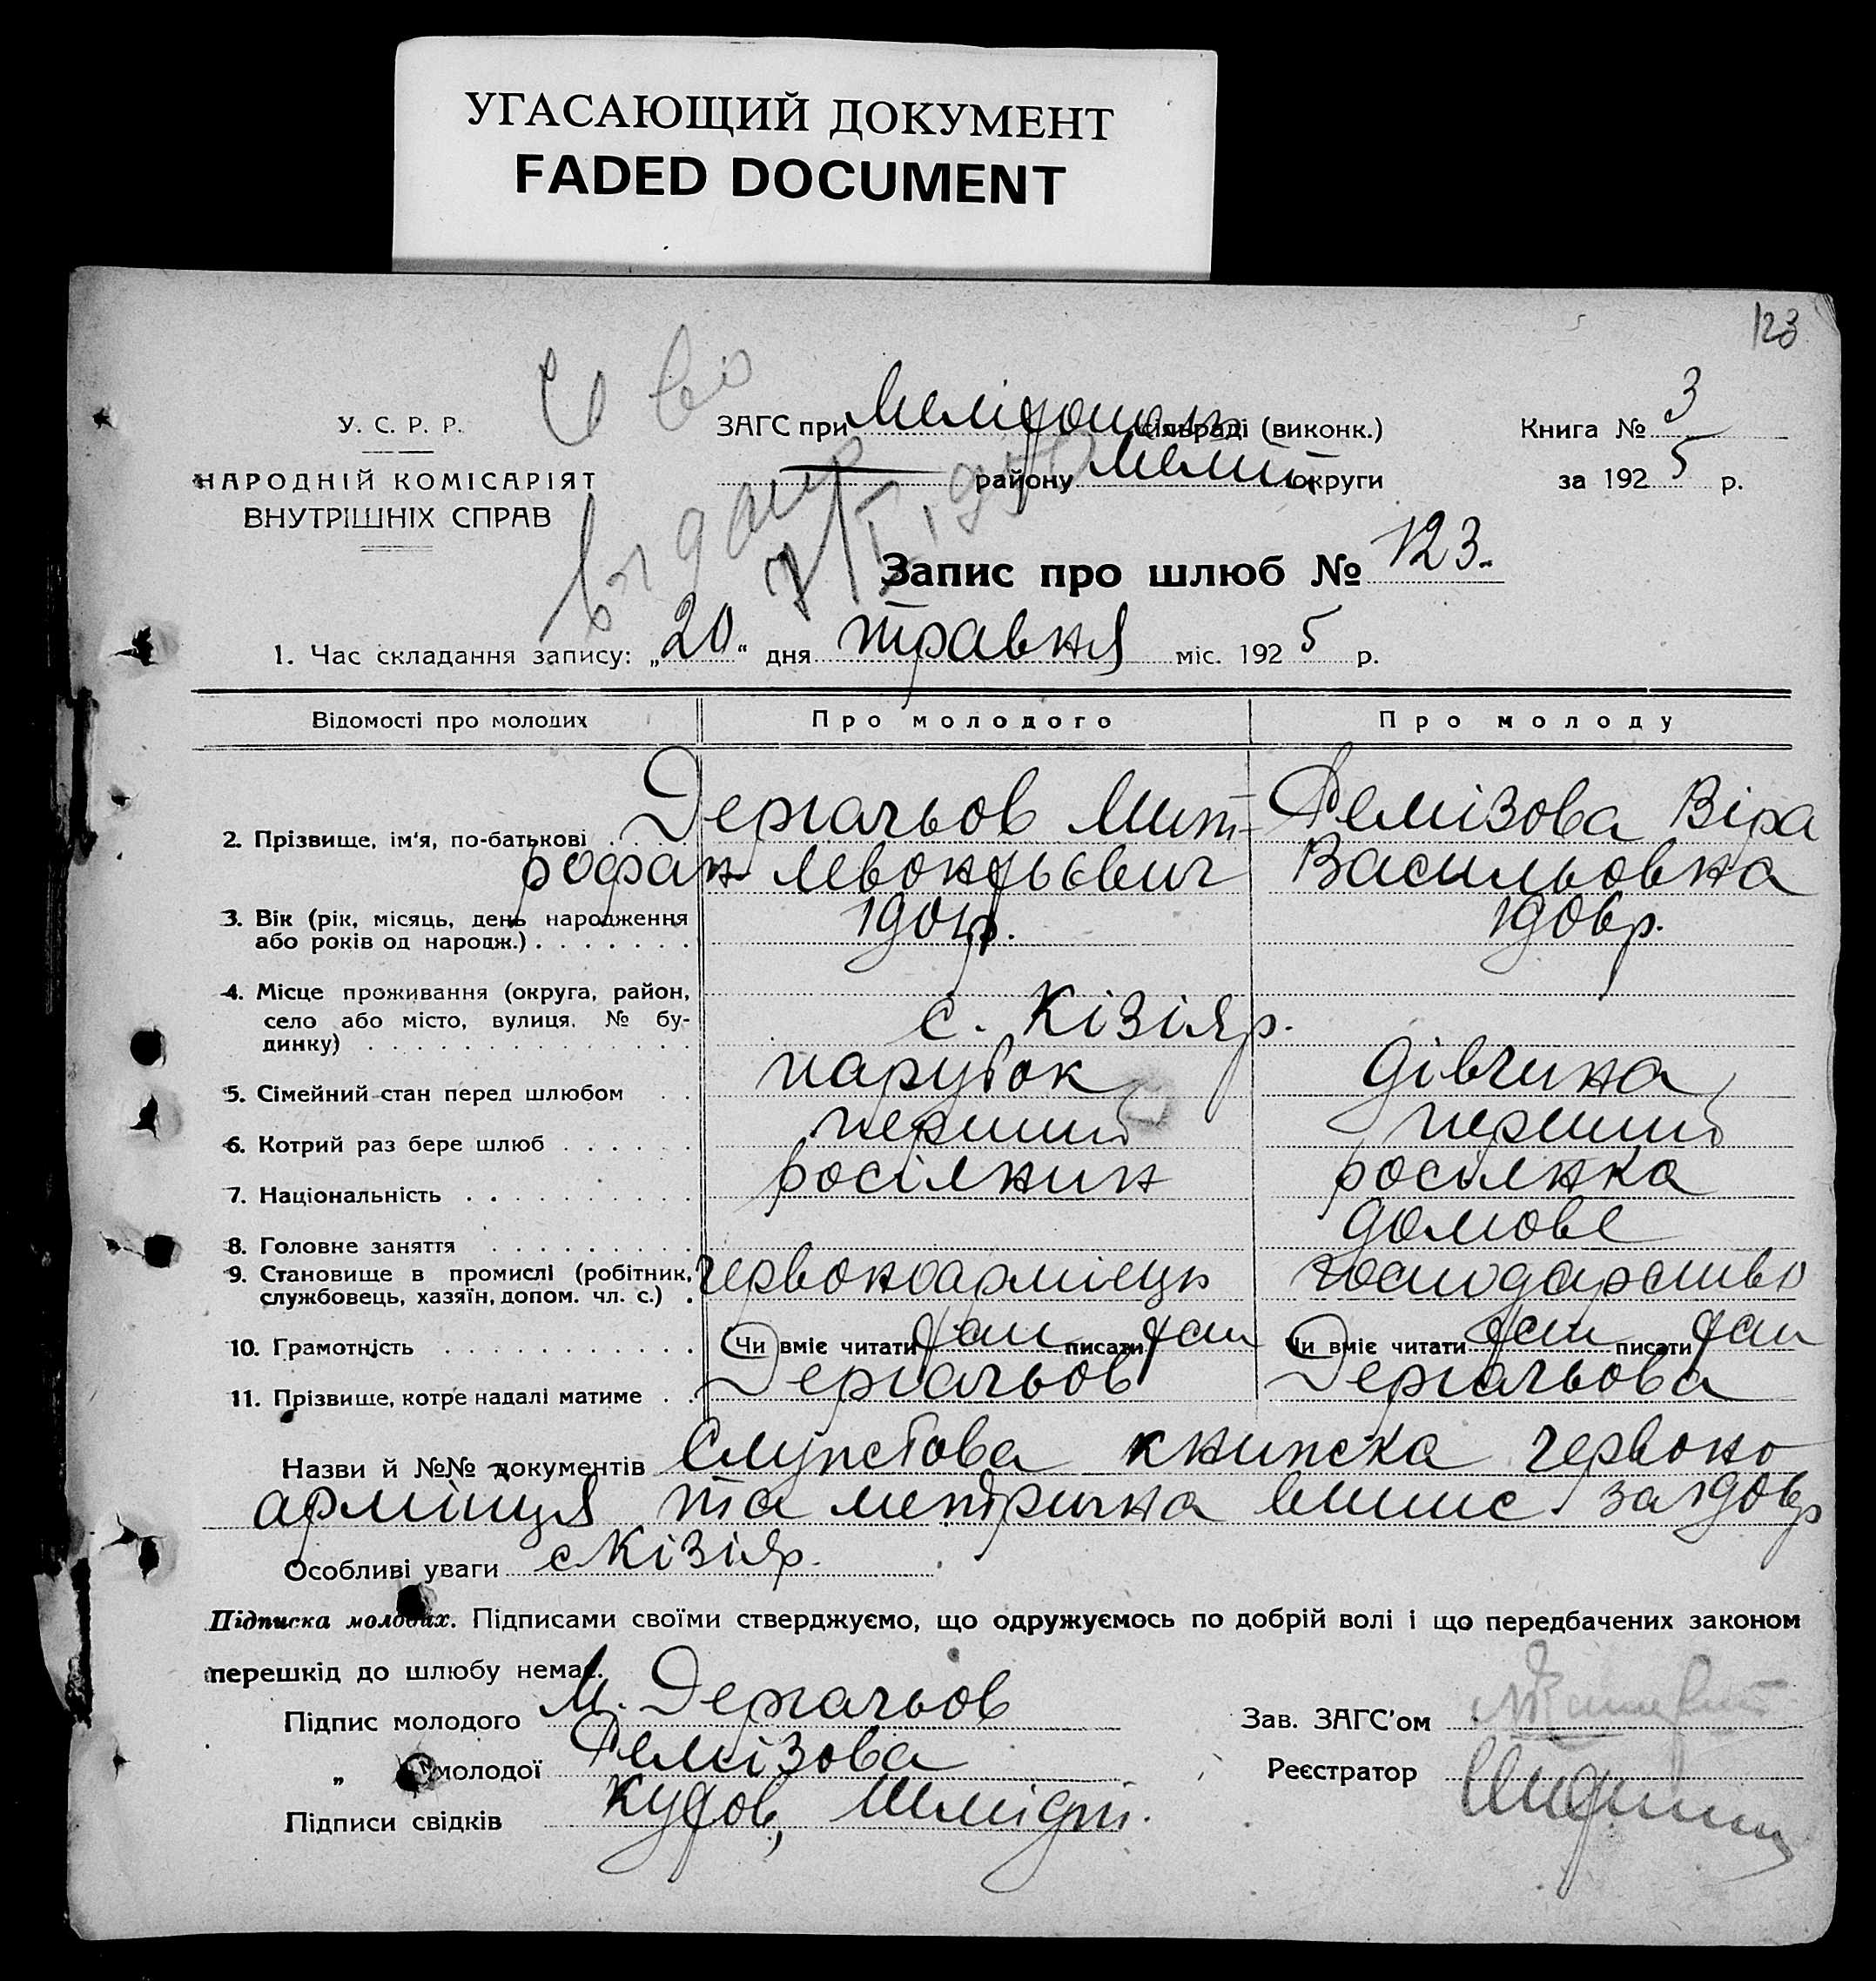 УГАСАЮЩИЙ ДОКУМЕНТ
FADED DOCUMENT
123
У. С. Р. Р.
НАРОДНІЙ КОМІСАРІЯТ
ВНУТРІШНІХ СПРАВ
ЗАГС при Меліtопольс сільраді (виконк.)
району Меліт. округи
Книга № 3
за 1925 р.
Запис про шлюб № 123.
1. Час складання запису: „20“ дня травня міс. 1925 р.
Відомості про молодих Про молодого Про молоду
2. Прізвище, ім'я, по-батькові Дергачьов Мит- Ремізова Віра
рофан Левонтьєвич Васильовна
3. Вік (рік, місяць, день народження 1901р. 1906р.
або років од народж.)
4. Місце проживання (округа, район,
село або місто, вулиця, № бу- с. Кізіяр.
динку)
5. Сімейний стан перед шлюбом парубок дівчина
6. Котрий раз бере шлюб перший перший
7. Національність росіянин росіянка
8. Головне заняття домове
9. Становище в промислі (робітник, червоноармієць господарство
службовець, хазяїн, допом. чл. с.)
10. Грамотність Чи вміє читати так писати так Чи вміє читати так писати так
11. Прізвище, котре надалі матиме Дергачьов Дергачьова
Назви й №№ документів книжка червоно
армійця та метрична випис за 1906р
Особливі уваги с Кізіяр.
Підписка молодих. Підписами своїми стверджуємо, що одружуємось по добрій волі і що передбачених законом
перешкід до шлюбу немає.
Підпис молодого М. Дергачьов
Зав. ЗАГС'ом
„ молодої Ремізова
Реєстратор
Підписи свідків Кутов, Шмідт.